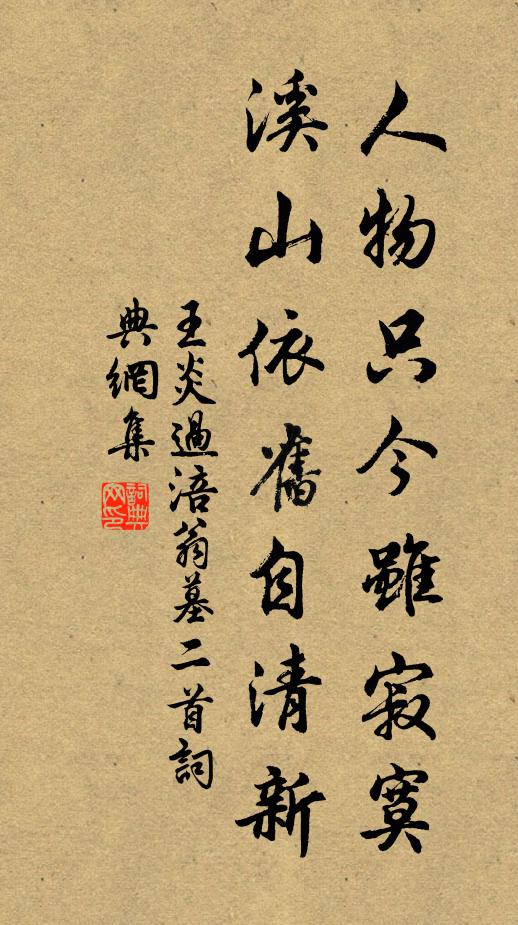 人物只今雖寂寞
溪山依舊自清新
王炎過涪翁墓二首詞
典網集
詞典
网印